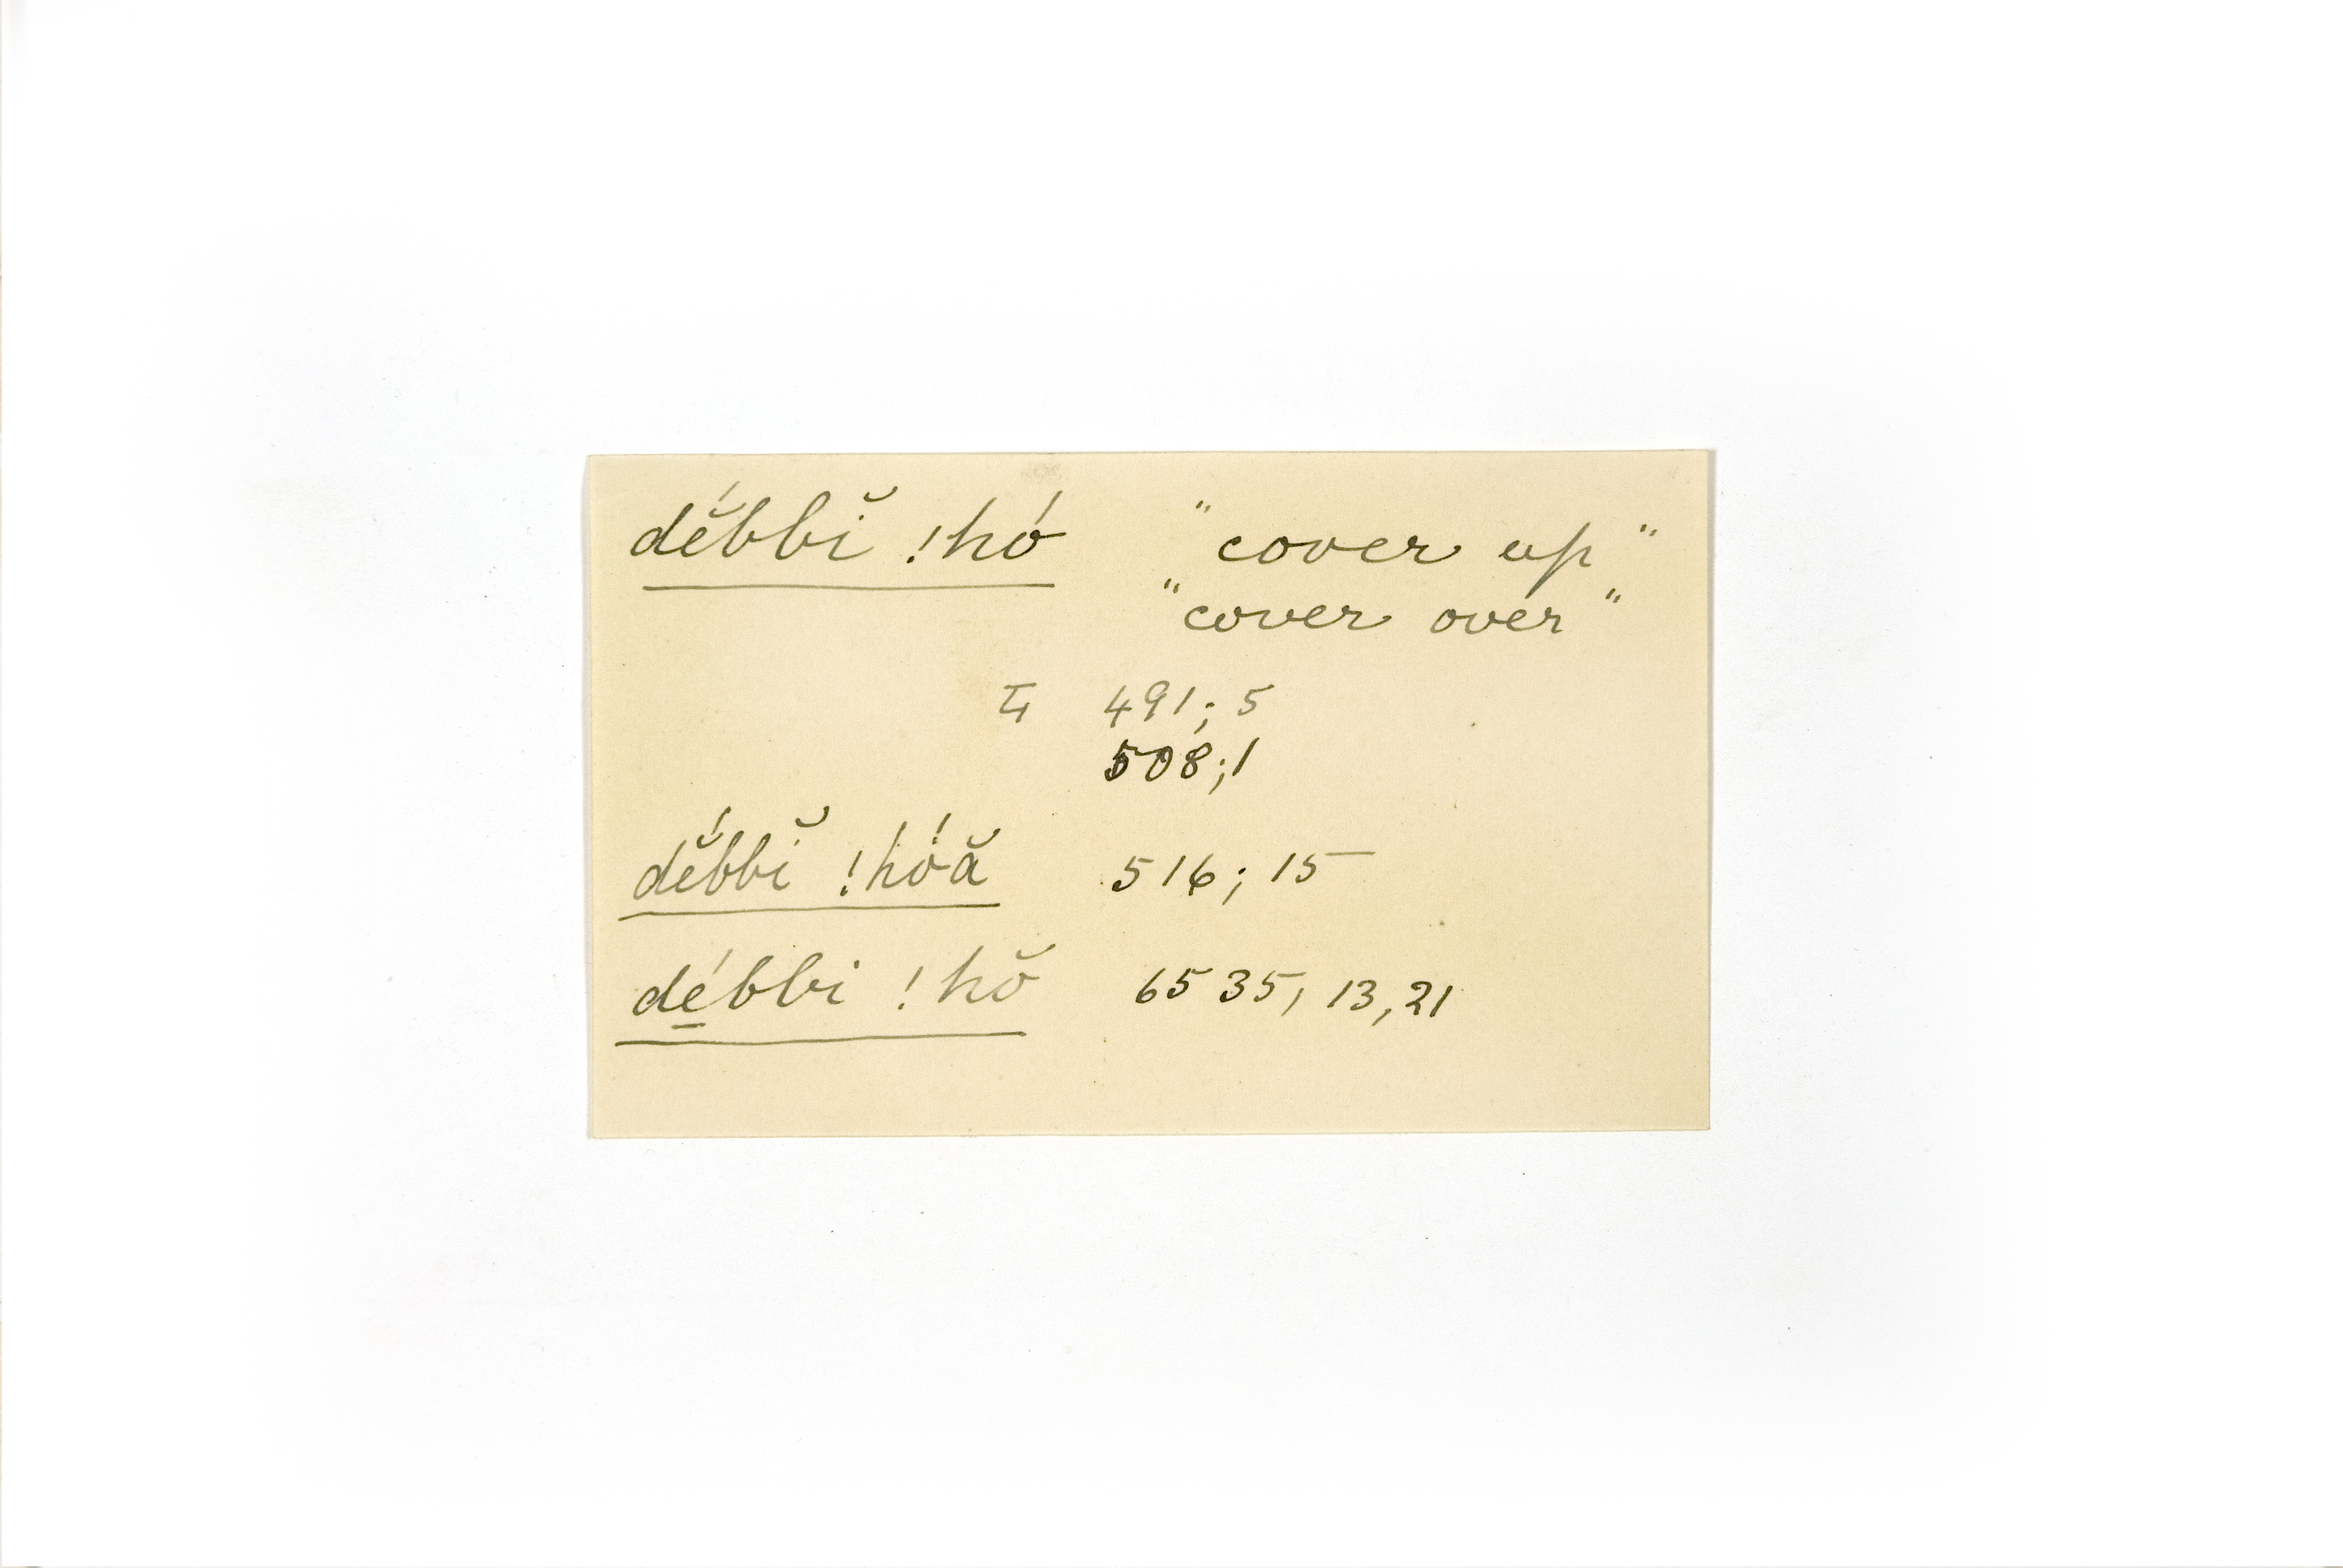 dĕ́bbĭ !hó "cover up"
"cover over"
491; 5
508; 1
dĕ́bbĭ !hóă 516; 15
dé̱bbi !hŏ 6535, 13, 21